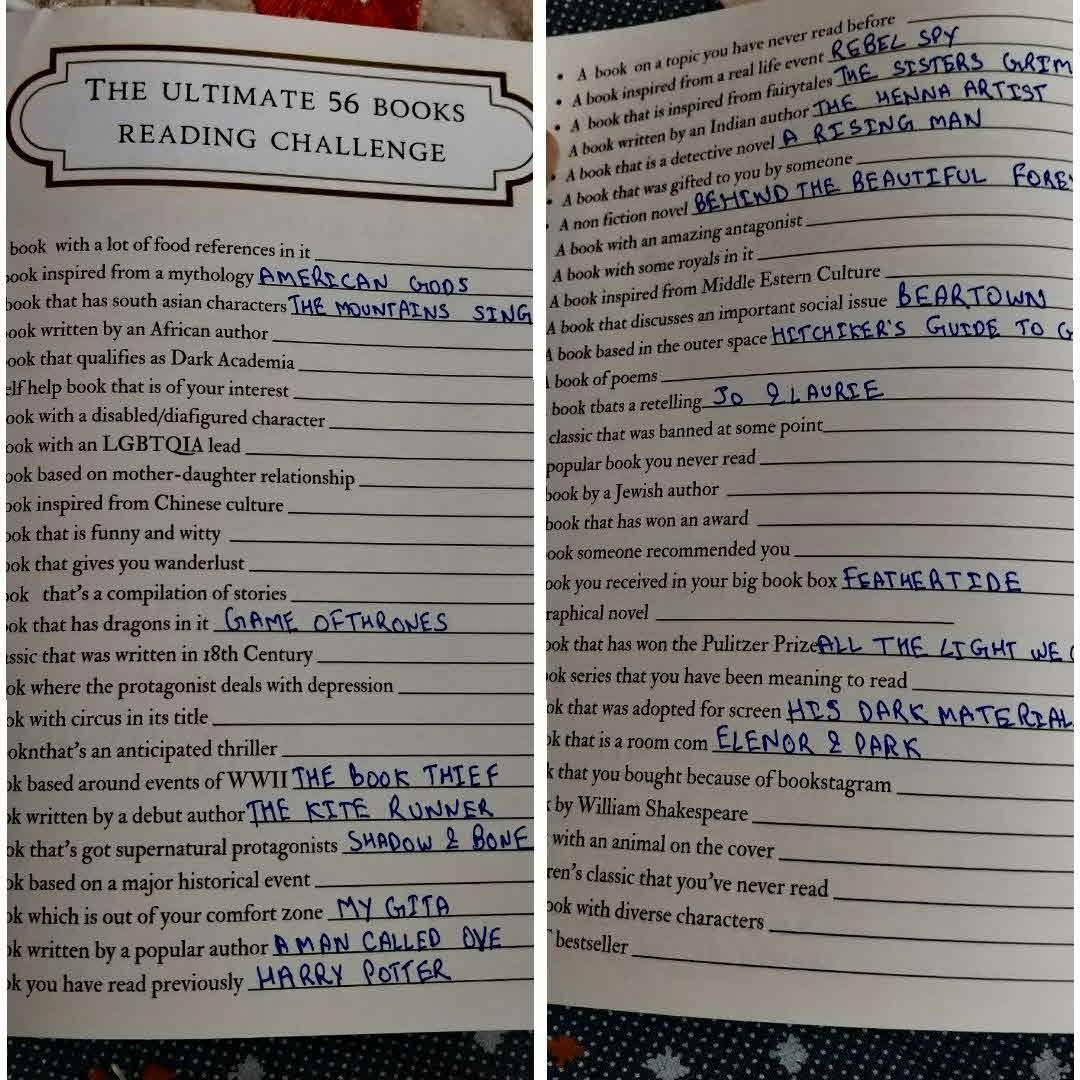 THE ULTIMATE 56 BOOKS
READING CHALLENGE
book with a lot of food references in it
ook inspired from a mythology AMERICAN GODS
ook that has south asian characters THE MOUNTAINS SING
ook written by an African author
ook that qualifies as Dark Academia
elf help book that is of your interest
ook with a disabled/diafigured character
ook with an LGBTQIA lead
ook based on mother-daughter relationship
ook inspired from Chinese culture
ook that is funny and witty
ok that gives you wanderlust
ok that's a compilation of stories
ok that has dragons in it GAME OF THRONES
ssic that was written in 18th Century
ok where the protagonist deals with depression
ok with circus in its title
oknthat's an anticipated thriller
ok based around events of WWII THE BOOK THIEF
ok written by a debut author THE KITE RUNNER
ok that's got supernatural protagonists SHADOW & BONE
ok based on a major historical event
ok which is out of your comfort zone MY GITA
ok written by a popular author A MAN CALLED OVE
ok you have read previously HARRY POTTER
• A book on a topic you have never read before
• A book inspired from a real life event REBEL SPY
• A book that is inspired from fairytales THE SISTERS GRIM
A book written by an Indian author THE HENNA ARTIST
• A book that is a detective novel A RISING MAN
• A book that was gifted to you by someone
• A non fiction novel BEHIND THE BEAUTIFUL FORE
A book with an amazing antagonist
A book with some royals in it
A book inspired from Middle Estern Culture
A book that discusses an important social issue BEARTOWN
A book based in the outer space HITCHIKER'S GUIDE TO G
book of poems
book tbats a retelling JO & LAURIE
classic that was banned at some point
popular book you never read
book by a Jewish author
book that has won an award
ook someone recommended you
ook you received in your big book box FEATHERTIDE
raphical novel
ook that has won the Pulitzer Prize ALL THE LIGHT WE
ok series that you have been meaning to read
ok that was adopted for screen HIS DARK MATERIAL
ok that is a room com ELENOR & PARK
k that you bought because of bookstagram
by William Shakespeare
with an animal on the cover
ren's classic that you've never read
ook with diverse characters
bestseller